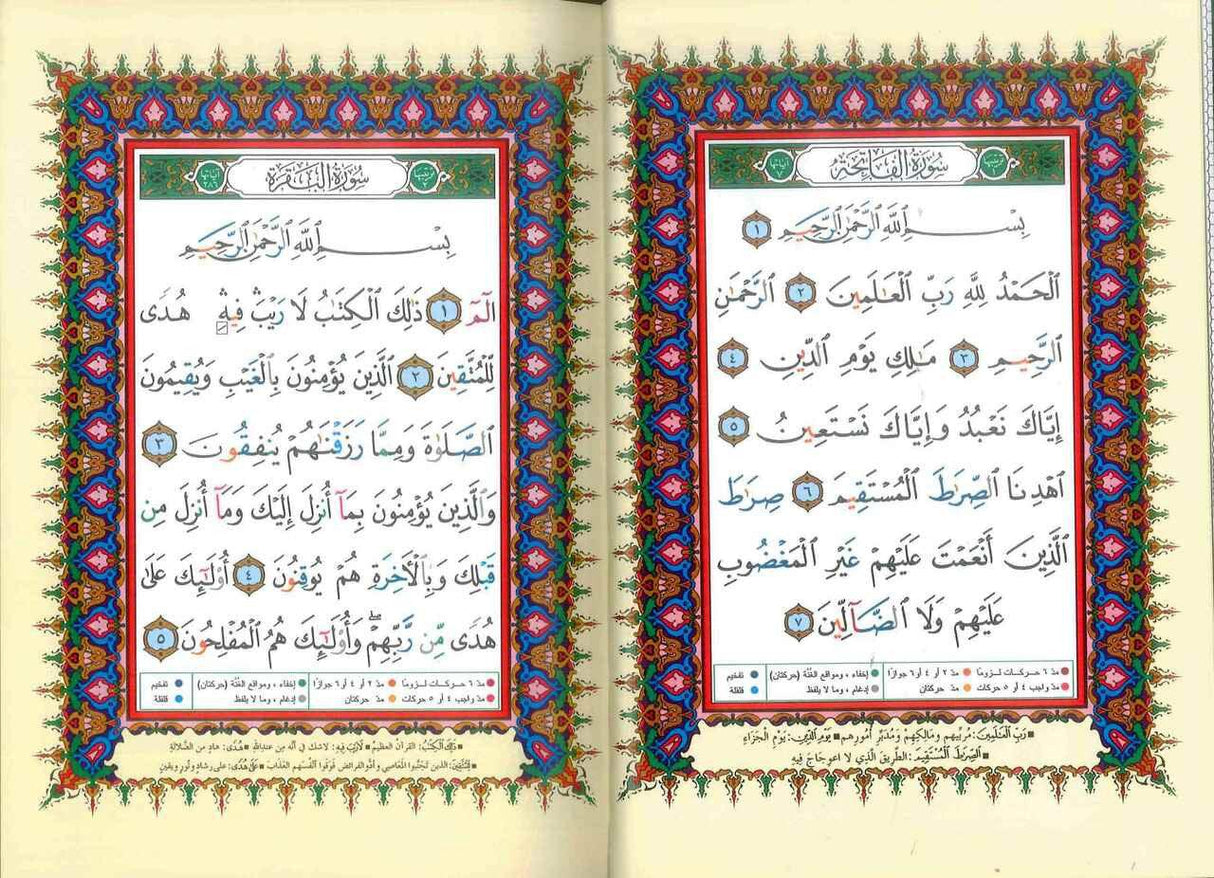 ترتيبها ١ سُورَةُ الفَاتِحَةِ آياتها ٧
بِسْمِ ٱللَّهِ ٱلرَّحْمَٰنِ ٱلرَّحِيمِ ١
ٱلْحَمْدُ لِلَّهِ رَبِّ ٱلْعَٰلَمِينَ ٢ ٱلرَّحْمَٰنِ
ٱلرَّحِيمِ ٣ مَٰلِكِ يَوْمِ ٱلدِّينِ ٤
إِيَّاكَ نَعْبُدُ وَإِيَّاكَ نَسْتَعِينُ ٥
ٱهْدِنَا ٱلصِّرَٰطَ ٱلْمُسْتَقِيمَ ٦ صِرَٰطَ
ٱلَّذِينَ أَنْعَمْتَ عَلَيْهِمْ غَيْرِ ٱلْمَغْضُوبِ
عَلَيْهِمْ وَلَا ٱلضَّآلِّينَ ٧
● مدّ ٦ حركات لزوماً ● مدّ ٢ أو ٤ أو ٦ جوازاً ● إخفاء ، ومواقع الغُنَّة (حركتان) ● تفخيم
● مدّ واجب ٤ أو ٥ حركات ● مدّ حركتان ● إدغام ، وما لا يلفظ ● قلقلة
■ رَبِّ ٱلْعَٰلَمِينَ: مُرَبِّيهِم وَمَالِكِهِمْ وَمُدَبِّرِ أُمُورِهِم ■ يَوْمِ ٱلدِّينِ: يَوْمِ الْجَزَاءِ
■ ٱلصِّرَٰطَ ٱلْمُسْتَقِيمَ: الطَّرِيقَ الَّذِي لا اعْوِجَاجَ فِيهِ
ترتيبها ٢ سُورَةُ البَقَرَةِ آياتها ٢٨٦
بِسْمِ ٱللَّهِ ٱلرَّحْمَٰنِ ٱلرَّحِيمِ
الٓمٓ ١ ذَٰلِكَ ٱلْكِتَٰبُ لَا رَيْبَ ۛ فِيهِ ۛ هُدًى
لِّلْمُتَّقِينَ ٢ ٱلَّذِينَ يُؤْمِنُونَ بِٱلْغَيْبِ وَيُقِيمُونَ
ٱلصَّلَوٰةَ وَمِمَّا رَزَقْنَٰهُمْ يُنفِقُونَ ٣
وَٱلَّذِينَ يُؤْمِنُونَ بِمَآ أُنزِلَ إِلَيْكَ وَمَآ أُنزِلَ مِن
قَبْلِكَ وَبِٱلْأَخِرَةِ هُمْ يُوقِنُونَ ٤ أُو۟لَٰٓئِكَ عَلَىٰ
هُدًى مِّن رَّبِّهِمْ ۖ وَأُو۟لَٰٓئِكَ هُمُ ٱلْمُفْلِحُونَ ٥
● مدّ ٦ حركات لزوماً ● مدّ ٢ أو ٤ أو ٦ جوازاً ● إخفاء ، ومواقع الغُنَّة (حركتان) ● تفخيم
● مدّ واجب ٤ أو ٥ حركات ● مدّ حركتان ● إدغام ، وما لا يلفظ ● قلقلة
■ ذَٰلِكَ ٱلْكِتَٰبُ: القرآن العظيم ■ لَا رَيْبَ فِيهِ: لا شك في أنه من عند الله ■ هُدًى: هاد من الضلالة
■ لِّلْمُتَّقِينَ: الذين تجنبوا المعاصي وأدوا الفرائض فوقوا أنفسهم العذاب ■ عَلَىٰ هُدًى: على رشاد ونور ويقين